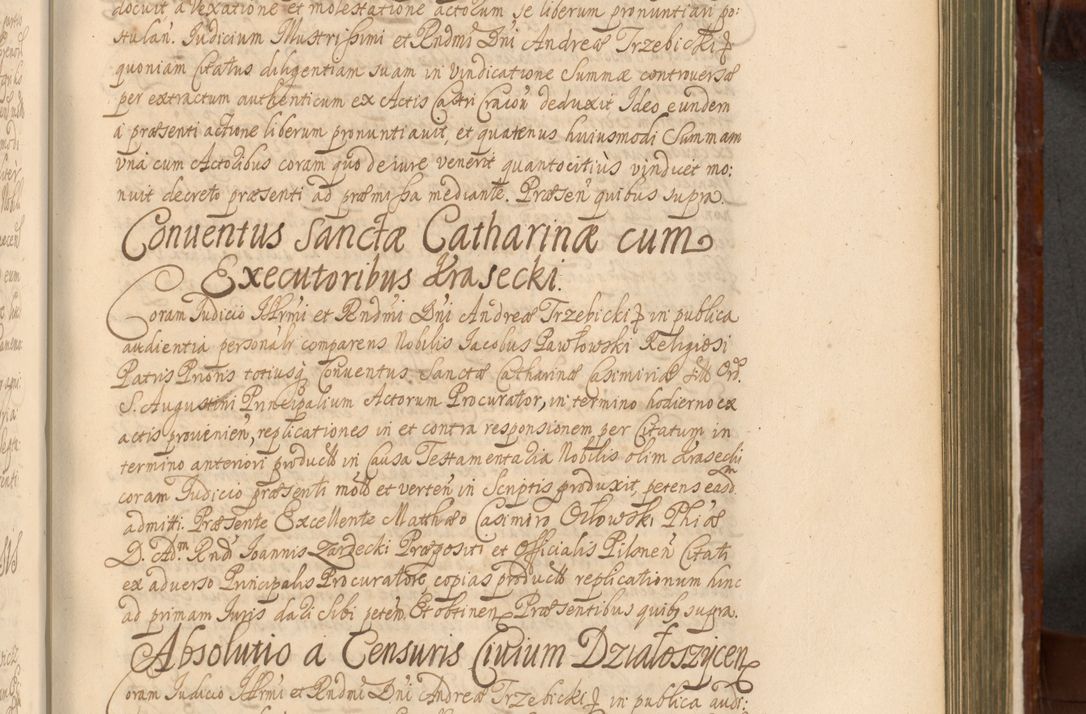 docuit a Vexatione et molestatione actorum se liberum pronuntiari po:
stulan. Iudicium Illustrissimi et Rndmi Dni Andreæ Trzebicki
quoniam Citatus diligentiam suam in Vindicatione Summæ controversæ
per extractum authenticum ex Actis Castri Cracou deduxit Ideo eundem
a præsenti actione liberum pronuntiauit, et quatenus huiusmodi Summam
vna cum Actoribus coram quo de iure venerit quantocitiùs vindicet mo:
nuit decreto præsenti ad præmissa mediante. Præsen quibus supra.
Conuentus Sanctæ Catharinæ cum
Executoribus Krasecki.
Coram Iudicio Illrmi et Rndmi Dni Andreæ Trzebicki in publica
audientia personalr comparens Nobilis Iacobus Pawłowski Religiosi
Patris Prioris totiusq Conuentus Sanctæ Catharinæ Casimiriæ Ord.
S. Augustini Principalium Actorum Procurator, in termino hodierno ex
actis prouenien, replicationes in et contra responsionem per Citatum in
termino anteriori product in Causa Testamentaria Nobilis olim Krasecki
coram Iudicio præsenti mot et verten in Scriptis produxit, petens easd
admitti. Præsente Excellente Matthæo Casimiro Orłowski Phiæ
D. Adm Rnd Ioannis Zardecki Præpositi et Officialis Pilsnen Citati
ex aduerso Principalis Procuratore copias product replicationum hinc
ad primam Iuris dari sibi peten. Et obtinen. Præsentibus quib supra.
Absolutio a Censuris Ciuium Działoszycen
Coram Iudicio Illrmi et Rndmi Dni Andreæ Trzebicki in publica audi: